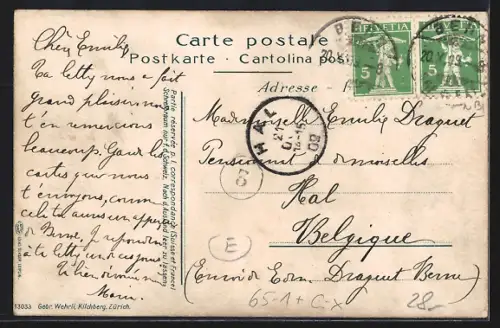 Carte postale
Postkarte · Cartolina postale
Adresse
Chère Emilie
Ta lettre nous a fait
grand plaisir nous
t'en remercions
beaucoup. Garde les
cartes que nous
t'envoyons, comme
cela tu auras un aperçu
de Berne. Je répondrai
à ta lettre un de ces jours
Mademoiselle Emilie Draguet
Pensionnat demoiselles
Hal
Belgique
(Envoi de Edm. Draguet Berne)
Partie réservée p. l. correspondance (Suisse et France)
HELVETIA
5
HELVETIA
5
BERN
HAL
21
14-15
09
07
E
65-1+ C-X
28.-
13033 Gebr. Wehrli, Kilchberg, Zürich.